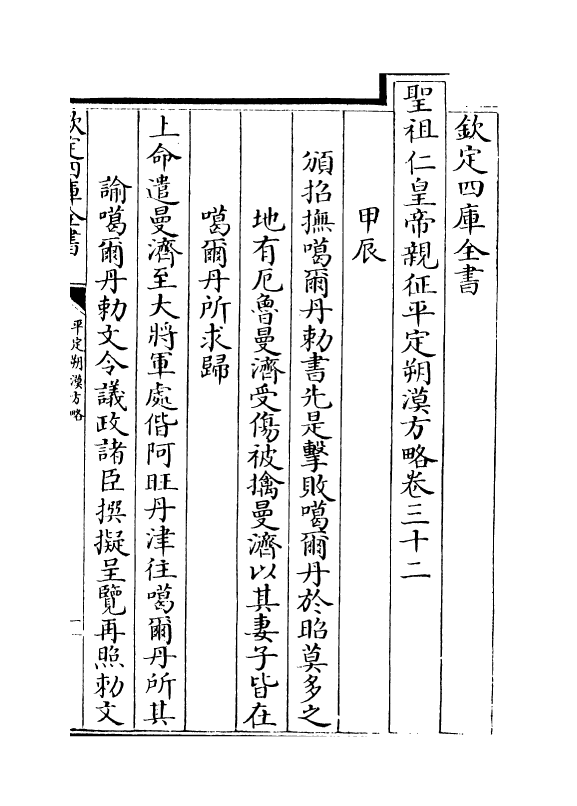 欽定四庫全書
聖祖仁皇帝親征平定朔漠方略卷三十二
甲辰
頒招撫噶爾丹勅書先是擊敗噶爾丹於昭莫多之
地有厄魯曼濟受傷被擒曼濟以其妻子皆在
噶爾丹所求歸
上命遣曼濟至大將軍處偕阿旺丹津往噶爾丹所其
諭噶爾丹勅文令議政諸臣撰擬呈覽再照勅文
欽定四庫全書
平定朔漠方略
一